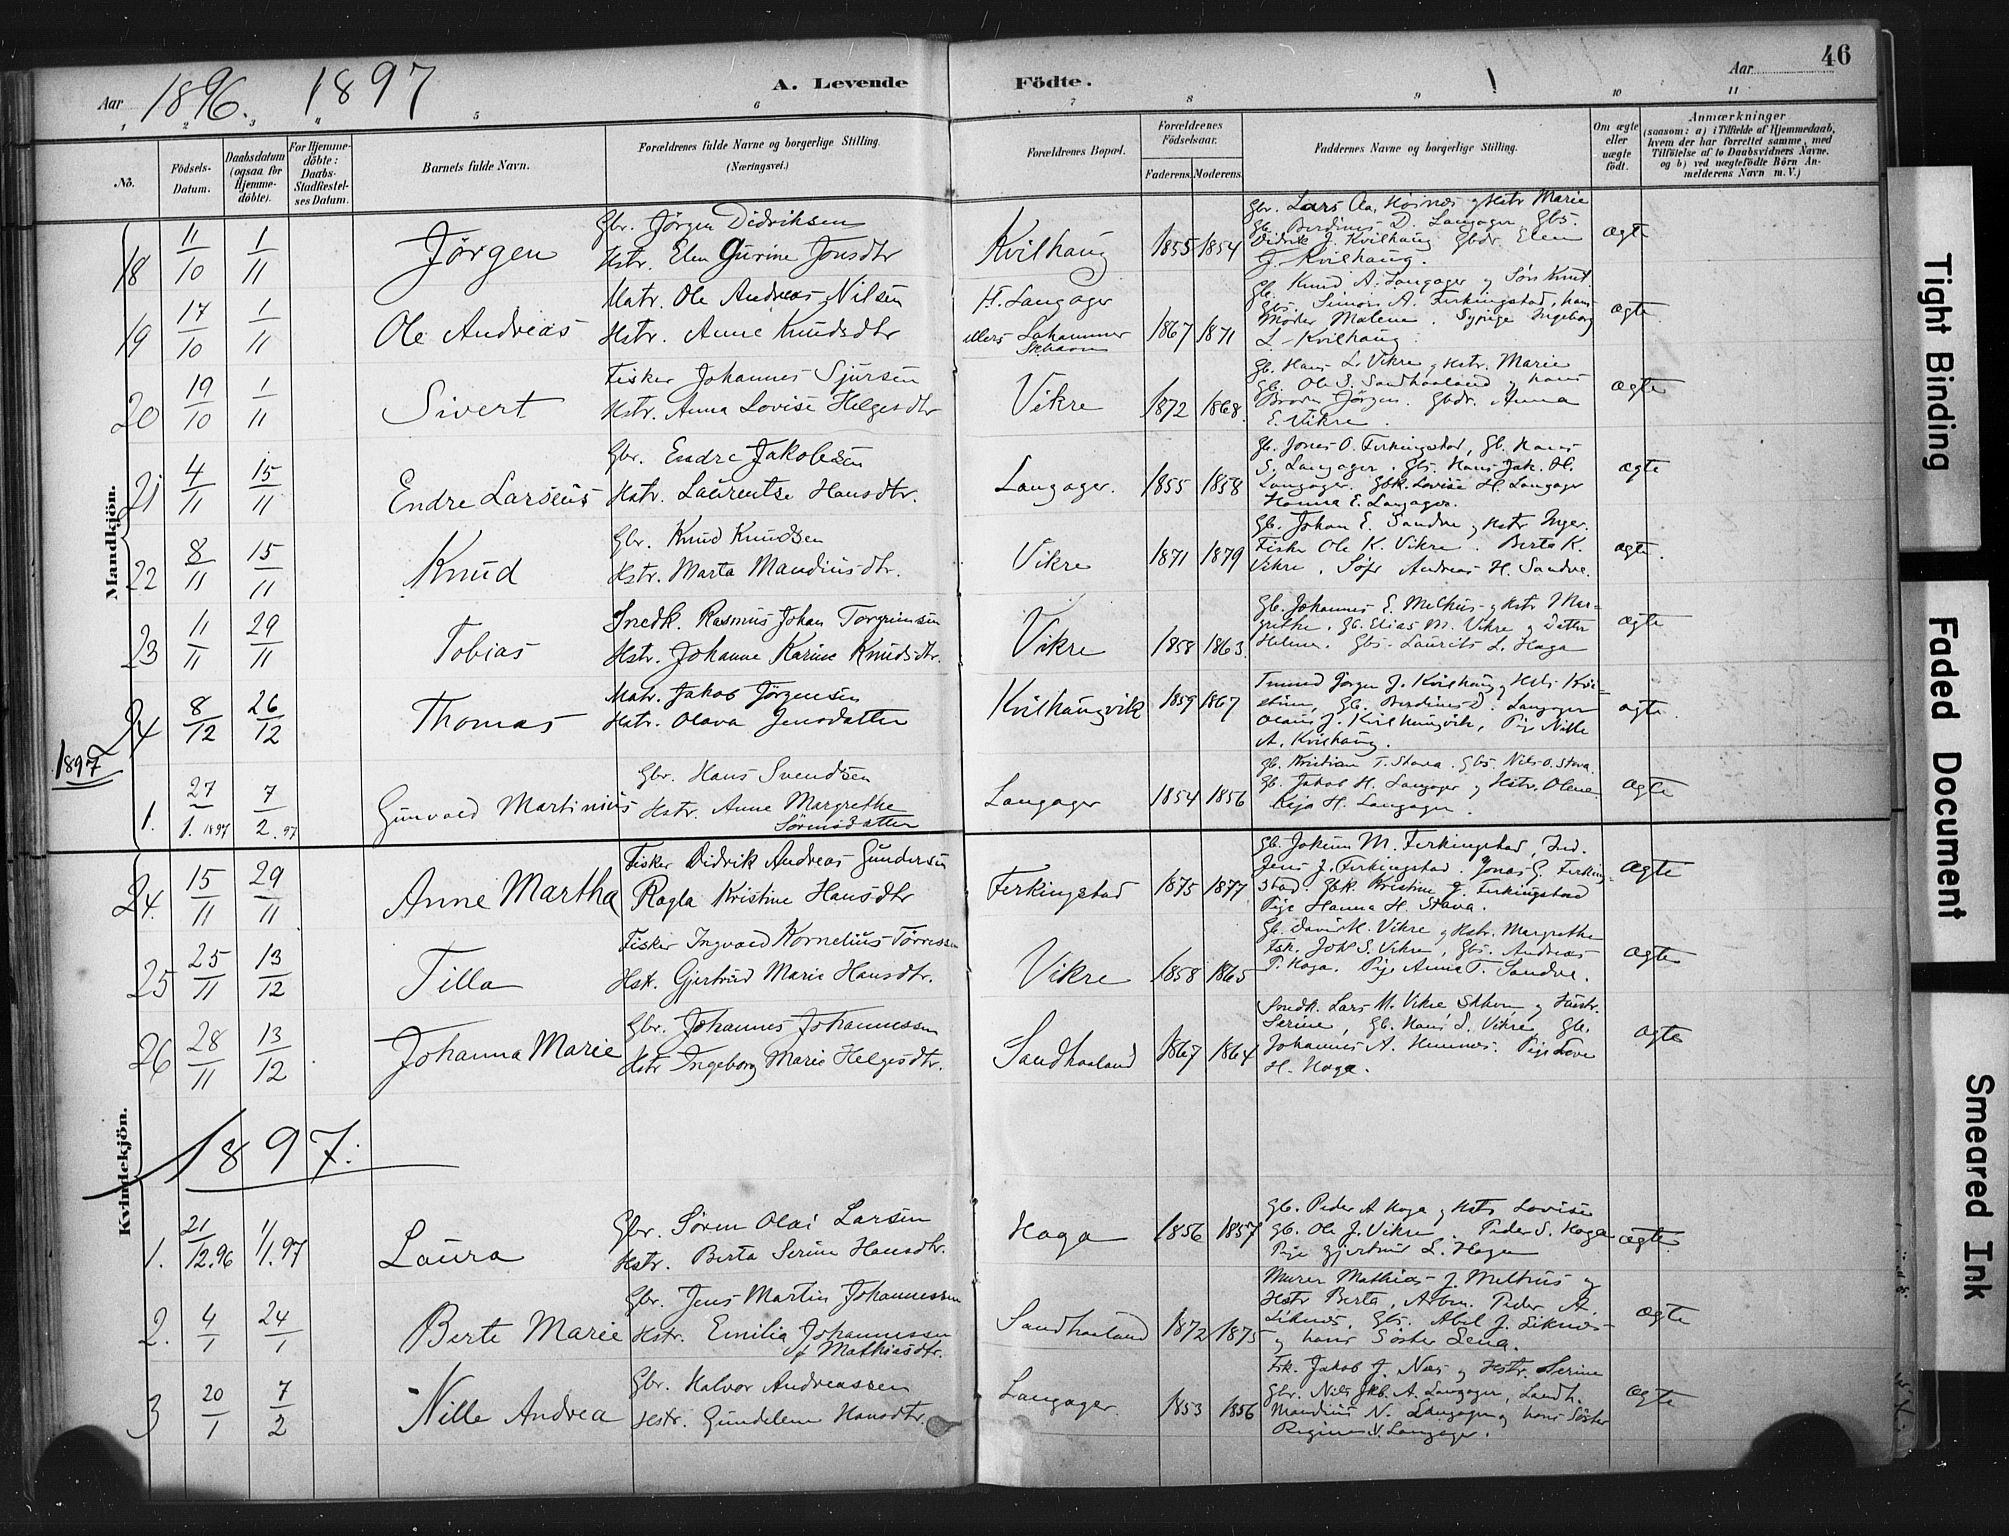 46
Aar 1896. 1897
A. Levende Födte.
Aar
1 2 3 4 5 6 7 8 9 10 11
No.
Födsels-Datum.
Daabsdatum (ogsaa for Hjemme-döbte).
For Hjemme-döbte: Daabs-Stadfæstel-ses Datum.
Barnets fulde Navn.
Forældrenes fulde Navne og borgerlige Stilling. (Næringsvei.)
Forældrenes Bopæl.
Forældrenes Födselsaar.
Faderens. Moderens.
Faddernes Navne og borgerlige Stilling.
Om ægte eller uægte födt.
Anmærkninger
(saasom: a) i Tilfælde af Hjemmedaab, hvem der har forrettet samme, med Tilföielse af to Daabsvidners Navne, og b) ved uægtefödte Börn An-melderens Navn m. V.)
Mandkjön.
18 11/10 1/11 Jörgen
Gbr. Jörgen Didriksen
Hstr. Elen Gurine Jonsdtr
Kvilhaug 1855 1854
Gbr. Lars Aa. Höines og Hstr Marie
Gb. Berdines D. Langager, Gbs.
Didrik J. Kvilhaug Gbdr. Elen
J. Kvilhaug.
ægte
19 17/10 1/11 Ole Andreas
Matr. Ole Andreas Nilsen
Hstr. Anne Knudsdtr
H. Langager
ellers Lahammer
Skhavn
1867 1871
Gb. Knud A. Langager og Sön Knut
Gbs. Simon A. Ferkingstad, hans
Moder Malene. Sypige Ingeborg
L. Kvilhaug
ægte.
20 19/10 1/11 Sivert
Fisker Johannes Sjursen
Hstr. Anna Lovise Helgesdtr
Vikre 1872 1868.
Gb. Hans L. Vikre og Hstr. Marie
Gb. Ole S. Sandhaaland og hans
Broder Jörgen. Gbdr. Anna
E. Vikre.
ægte
21 4/11 15/11 Endre Larseus
Gbr. Endre Jakobsen
Hstr. Laurentse Hansdtr.
Langager. 1855 1858
Gb. Jones O. Ferkingstad, Gb. Hans
S. Langager. Gbs. Hans Jak. H.
Langager. Gbk. Lovise H. Langager
Hanna E. Langager.
ægte
22 8/11 15/11 Knud
Gbr. Knud Knudsen
Hstr. Marta Mandiusdtr.
Vikre 1871 1879
Gb. Johan E. Sandve og Hstr Inger.
Fisker Ole K. Vikre. Berta K.
Vikre. Söfr Andreas H. Sandve.
ægte.
23 11/11 29/11 Tobias
Snedk. Rasmus Johan Torgrimsen
Hstr. Johanne Karine Knudsdtr.
Vikre 1858 1863.
Gb. Johannes E. Melhus og Hstr Mar=
grethe, Gb. Elias M. Vikre og Datter
Helene. Gbs. Laurits L. Haga
ægte
24 8/12 26/12 Thomas
Matr. Jakob Jörgensen
Hstr. Olava Jensdatter
Kvilhaugvik 1859 1867
Jörgen J. Kvilhaug og Hstr Kri=
stine, Gb. Berdines D. Langager
Olaus J. Kvilhaugvik, Pige Nille
A. Kvilhaug.
ægte.
1897
1. 27/1. 1897 7/2. 97 Gunvald Martinius
Gbr. Hans Svendsen
Hstr. Anne Margrethe
Sörensdatter
Langager 1854 1856
Gb. Kristian T. Stava. Gbs. Nils O. Stava.
Gb. Jakob H. Langager og Hstr. Olene
Kaja H. Langager.
ægte
Kvindekjön.
24. 15/11 29/11 Anne Martha
Fisker Didrik Andreas Gundersen
Ragla Kristine Hansdtr
Ferkingstad 1875 1877
Gb. Jokum M. Ferkingstad, Ind.
Jens J. Ferkingstad. Jonas G. Ferking-
stad. Gbk. Kristine G. Ferkingstad
Pige Hanna H. Stava.
ægte
25 25/11 13/12 Tilla
Fisker Ingvald Kornelius Törressen
Hstr. Gjertrud Marie Hansdtr.
Vikre 1858 1865
Gb. David K. Vikre og Hstr. Margrethe
Fsk. Joh S. Vikre, Gbs. Andreas
T. Haga. Pige Anna T. Sandve.
ægte
26 28/11 13/12 Johanna Marie
Gbr. Johannes Johannessen
Hstr Ingeborg Marie Helgesdtr.
Sandhaaland 1867 1864
Snedk. Lars M. Vikre Skhvn og Hustr.
Serine, Gb. Hans S. Vikre, Gb.
Johannes A. Hemnes. Pige Lova
H. Haga.
ægte
1897.
1. 21/12.96 1/1.97 Laura
Gbr. Sören Olai Larsen
Hstr. Berta Serine Hansdtr.
Haga 1856 1857
Gb. Peder A Haga og Hstr Lovise
Gb. Ole J. Vikre. Peder S. Haga
Pige Gjertrud L. Haga
ægte
2. 4/1 24/1 Berte Marie
Gbr. Jens Martin Johannessen
Hstr. Emilia Johannessen
f Mathiasdtr.
Sandhaaland 1872 1875
Murer Mathias J. Melhus og
Hstr Berta, Arbm. Peder A.
Liknes, Gbs. Abel J. Liknes
og hans Söster Lena.
ægte
3 20/1 7/2 Nille Andrea
Gbr. Halvor Andreassen
Hstr. Gundelena Hansdtr.
Langager 1853 1856
Fsk. Jakob J. Næs og Hstr Serine
Gbr. Nils Jkb. A. Langager, Landh.
Mandius N. Langager og hans Söster
Regine N. Langager.
ægte
Tight Binding
Faded Document
Smeared Ink